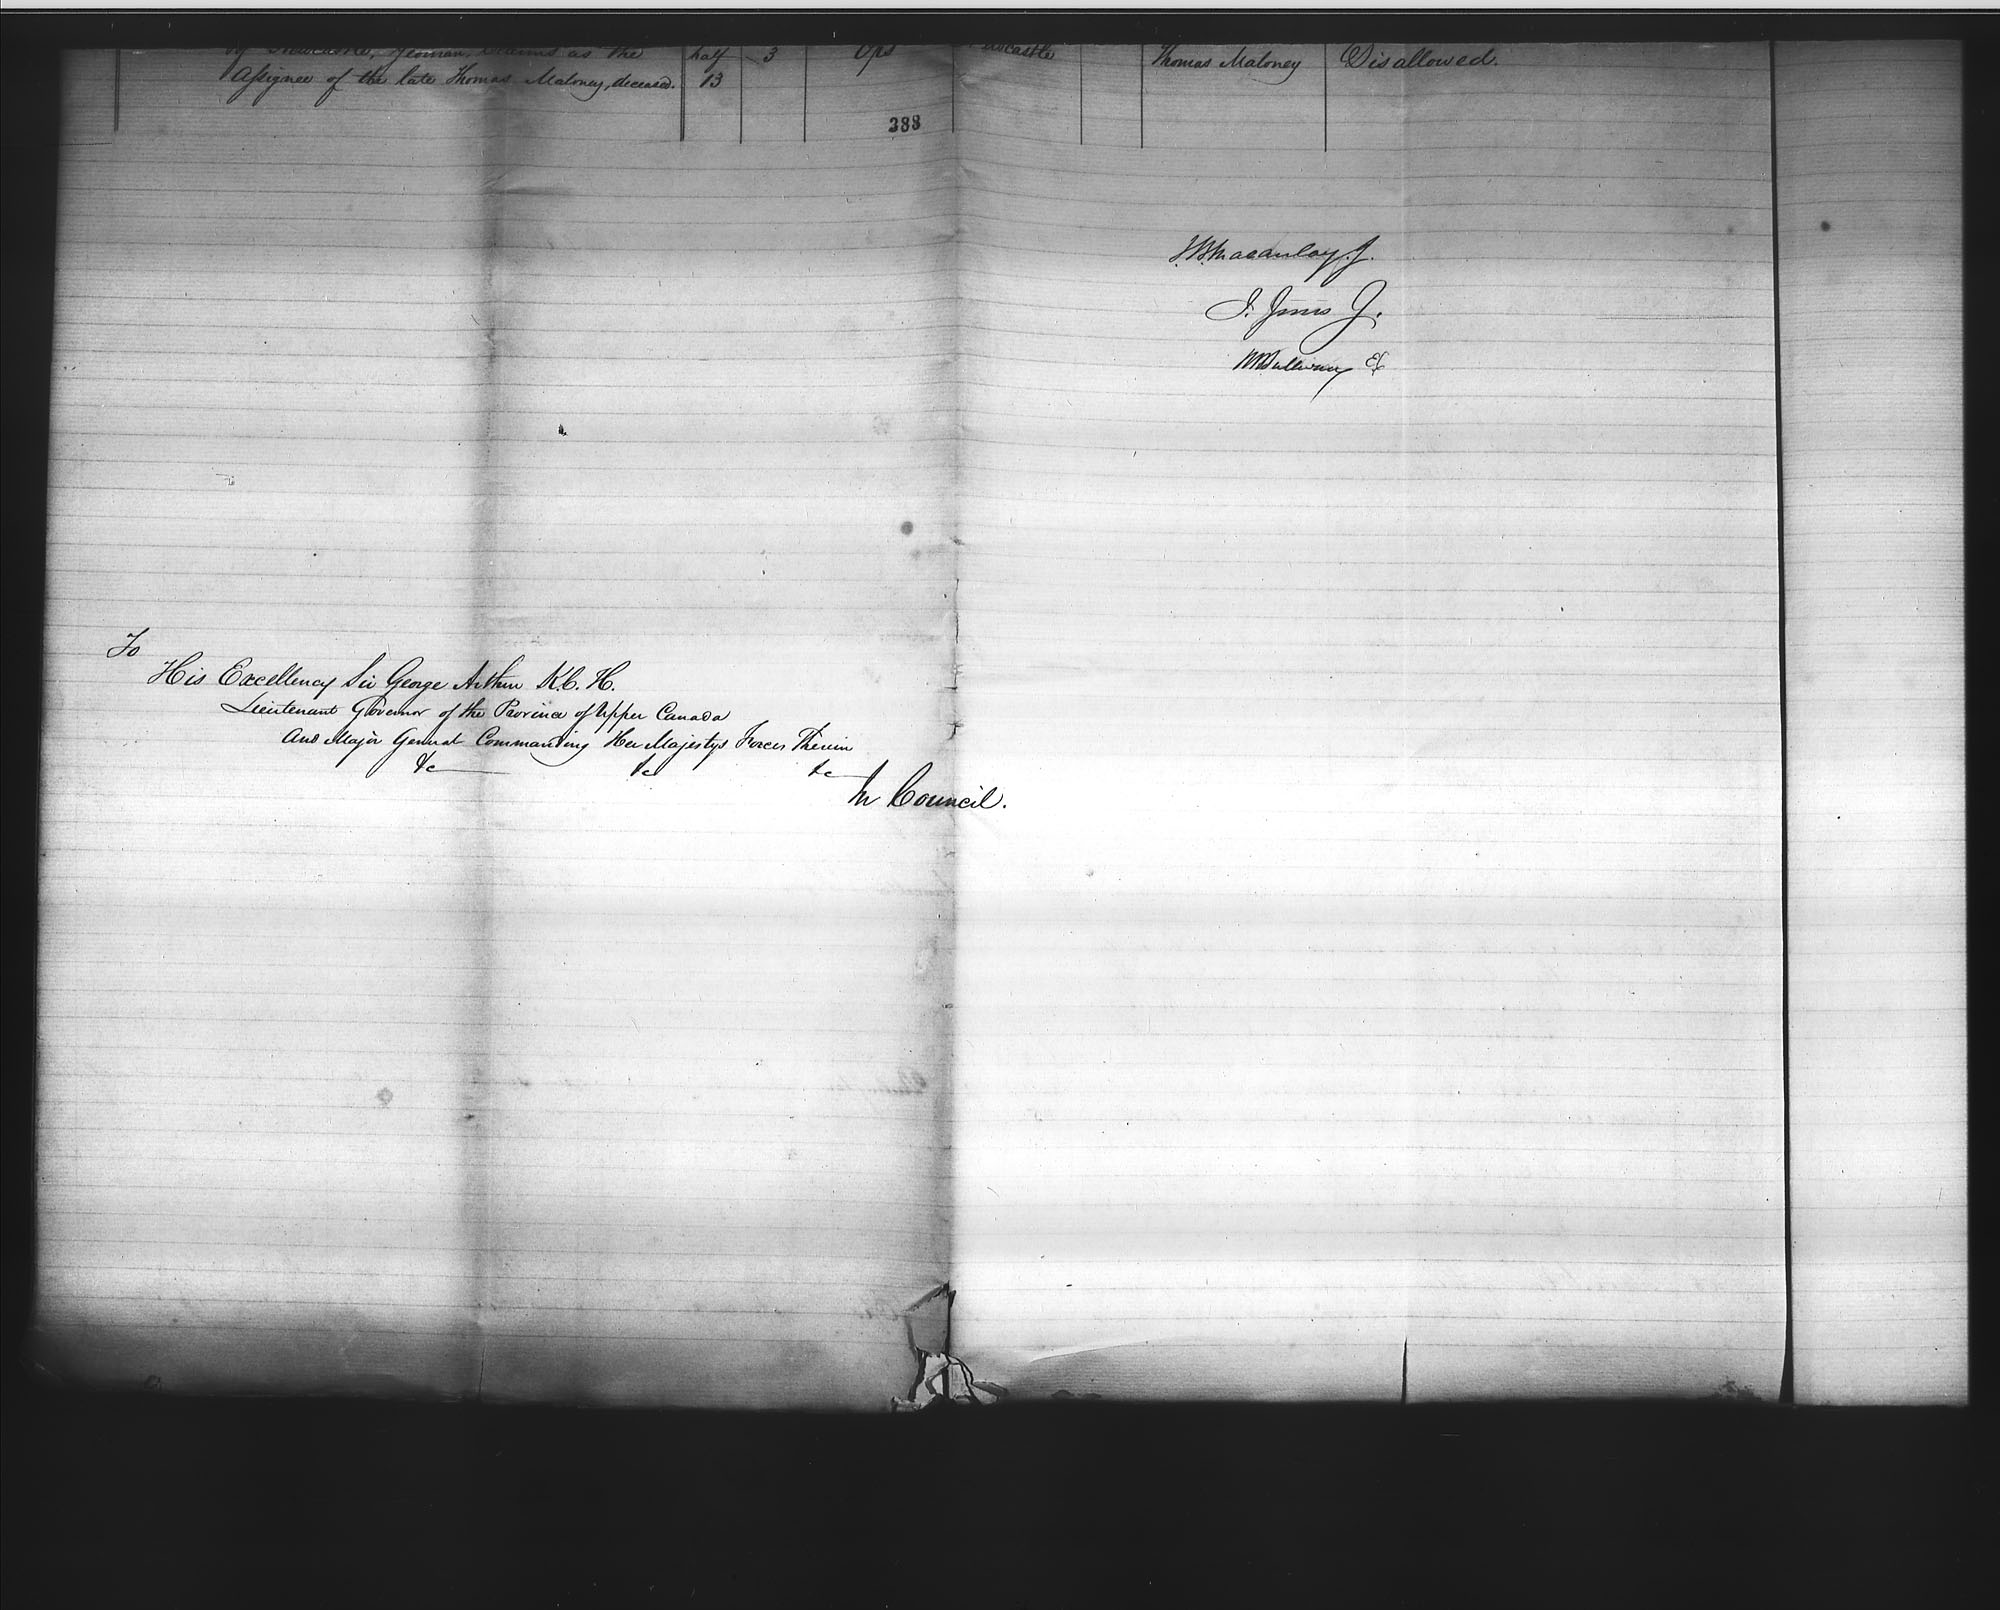 of Newcastle, Yeoman. Claims as the half 3 Ops Newcastle Thomas Maloney Disallowed.
Assignee of the late Thomas Maloney, deceased. 13
388
J.B. Macaulay. J.
J. Jones J.
RBSullivan
To
His Excellency Sir George Arthur K.C.H.
Lieutenant Governor of the Province of Upper Canada
And Major General Commanding Her Majestys Forces Therein
&c &c &c
In Council.